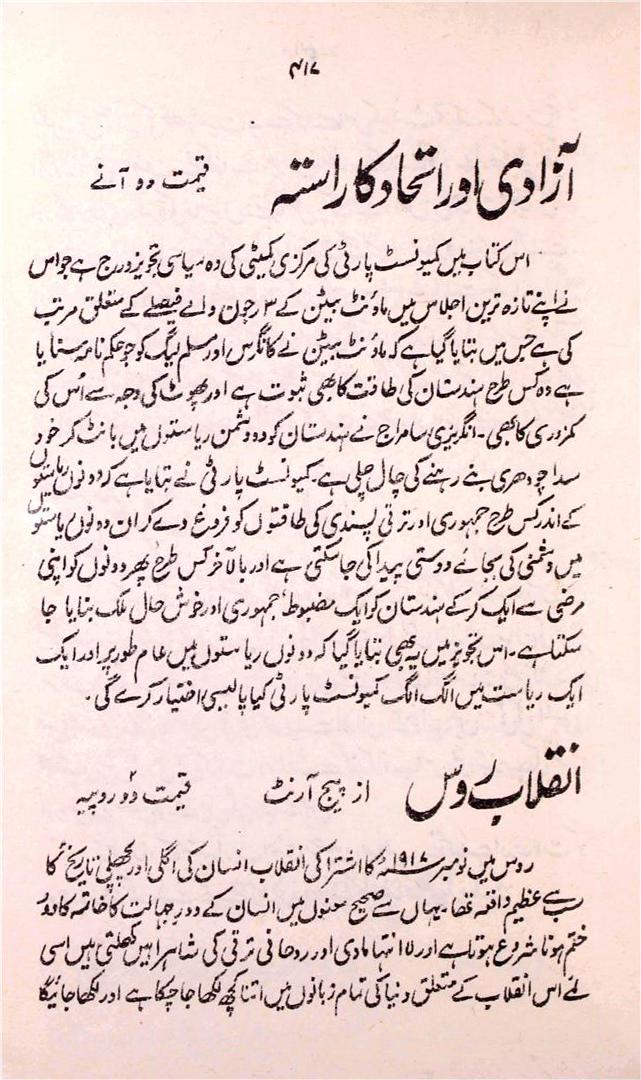 ۴۱۷
آزادی اور اتحاد کا راستہ قیمت دو آنے
اس کتاب میں کمیونسٹ پارٹی کی مرکزی کمیٹی کی وہ سیاسی تجویز درج ہے جو اس
نے اپنے تازہ ترین اجلاس میں ماؤنٹ بیٹن کے ۳ رجون والے فیصلے کے متعلق مرتب
کی ہے جس میں بتایا گیا ہے کہ ماؤنٹ بیٹن نے کانگرس اور مسلم لیگ کو جو حکم نامہ سنایا
ہے وہ کس طرح ہندستان کی طاقت کا بھی ثبوت ہے اور پھوٹ کی وجہ سے اُس کی
کمزوری کا بھی۔ انگریزی سامراج نے ہندستان کو دو دشمن ریاستوں میں بانٹ کر خود
سدا چودھری بنے رہنے کی چال چلی ہے۔ کمیونسٹ پارٹی نے بتایا ہے کہ دونوں ریاستوں
کے اندر کس طرح جمہوری اور ترقی پسندی کی طاقتوں کو فروغ دے کر ان دونوں ریاستوں
میں دشمنی کی بجائے دوستی پیدا کی جا سکتی ہے اور بالآخر کس طرح پھر دونوں کو اپنی
مرضی سے ایک کر کے ہندستان کو ایک مضبوط، جمہوری اور خوش حال ملک بنایا جا
سکتا ہے۔ اس تجویز میں یہ بھی بتایا گیا کہ دونوں ریاستوں میں عام طور پر اور ایک
ایک ریاست میں الگ الگ کمیونسٹ پارٹی کیا پالیسی اختیار کرے گی۔
انقلاب روس از پیج آرنٹ قیمت دو روپیہ
روس میں نومبر ۱۹۱۷ء کا اشتراکی انقلاب انسان کی اگلی اور پچھلی تاریخ کا
سب سے عظیم واقعہ تھا۔ یہاں سے صحیح معنوں میں انسان کے دور جہالت کا خاتمہ کا دور
ختم ہونا شروع ہوتا ہے اور لا انتہا مادی اور روحانی ترقی کی شاہراہیں کھلتی ہیں اسی
لئے اس انقلاب کے متعلق دنیا کی تمام زبانوں میں اتنا کچھ لکھا جا چکا ہے اور لکھا جائیگا